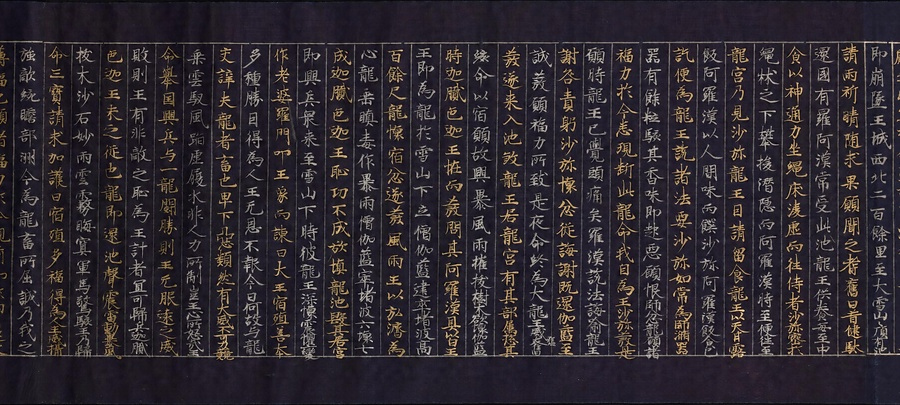 即崩墜王城西北二百餘里至大雪山山頂有池
請雨祈晴隨求果願聞之耆舊曰昔健馱
邏國有羅阿漢常受此池龍王供養每至中
食以神通力坐繩床淩虛而往侍者沙弥密於
繩床之下攀援潛隱而阿羅漢時至便往至
龍宮乃見沙弥龍王因請留食龍王以天甘露
飯阿羅漢以人間味而饌沙弥阿羅漢飯食已
訖便為龍王說諸法要沙弥如常為師滌器
器有餘粒駭其香味即起惡願恨師忿龍願諸
福力於今悉現斷此龍命我自為王沙弥發是
願時龍王已覺頭痛矣羅漢說法誨喻龍王
謝咎責躬沙弥懷忿從誨謝既還伽藍至
誠發願福力所致是夜命終為大龍王威猛奮
發遂來入池煞龍王居龍宮有其部屬捴其
統命以宿願故興暴風雨摧拔樹木欲壞伽藍
時迦膩色迦王怪而發問其阿羅漢具白王
王即為龍於雪山下立僧伽藍建窣堵波高
百餘尺龍懷宿忿遂發風雨王以弘濟為
心龍乘瞋毒作暴風雨僧伽藍窣堵波六壞七
成迦膩色迦王恥功不成欲填龍池毀其居室
即興兵衆來至雪山下時彼龍王深懷震懼變
作老婆羅門叩王象而諫曰大王宿殖善本
多種勝因得為人王无思不服今日何故与龍
交諍夫龍者畜也卑下惡類然有大威不可力競
乘雲馭風蹈虛履水非人力所制豈王心所怒哉王
今舉國興兵与一龍鬪勝則王无服遠之威
敗則王有非敵之恥為王計者宜可歸兵迦膩
色迦王未之從也龍即還池聲震雷動暴風
拔木沙石如雨雲霧晦冥軍馬驚駭王乃歸
命三寶請求加護曰宿殖多福得為人王威懾
強敵統贍部洲今為龍畜所屈誠乃我之